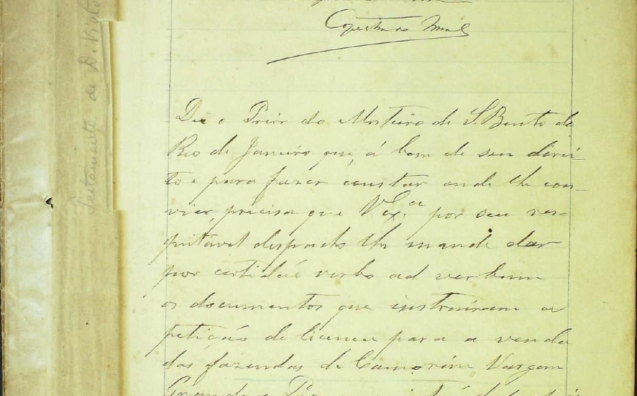 Diz o Prior do Mosteiro de S. Bento do
Rio de Janeiro que, á bem de seu direi-
to e para fazer constar onde lhe con-
vier, precisa que V. Exᶜⁱᵃ por seu res-
peitavel despacho lhe mande dar
por certidão verbo ad verbum
os documentos que instruiram a
petição de licença para a venda
das fazendas de Camorim, Vargem
Grande e
Testamento de D. Victo